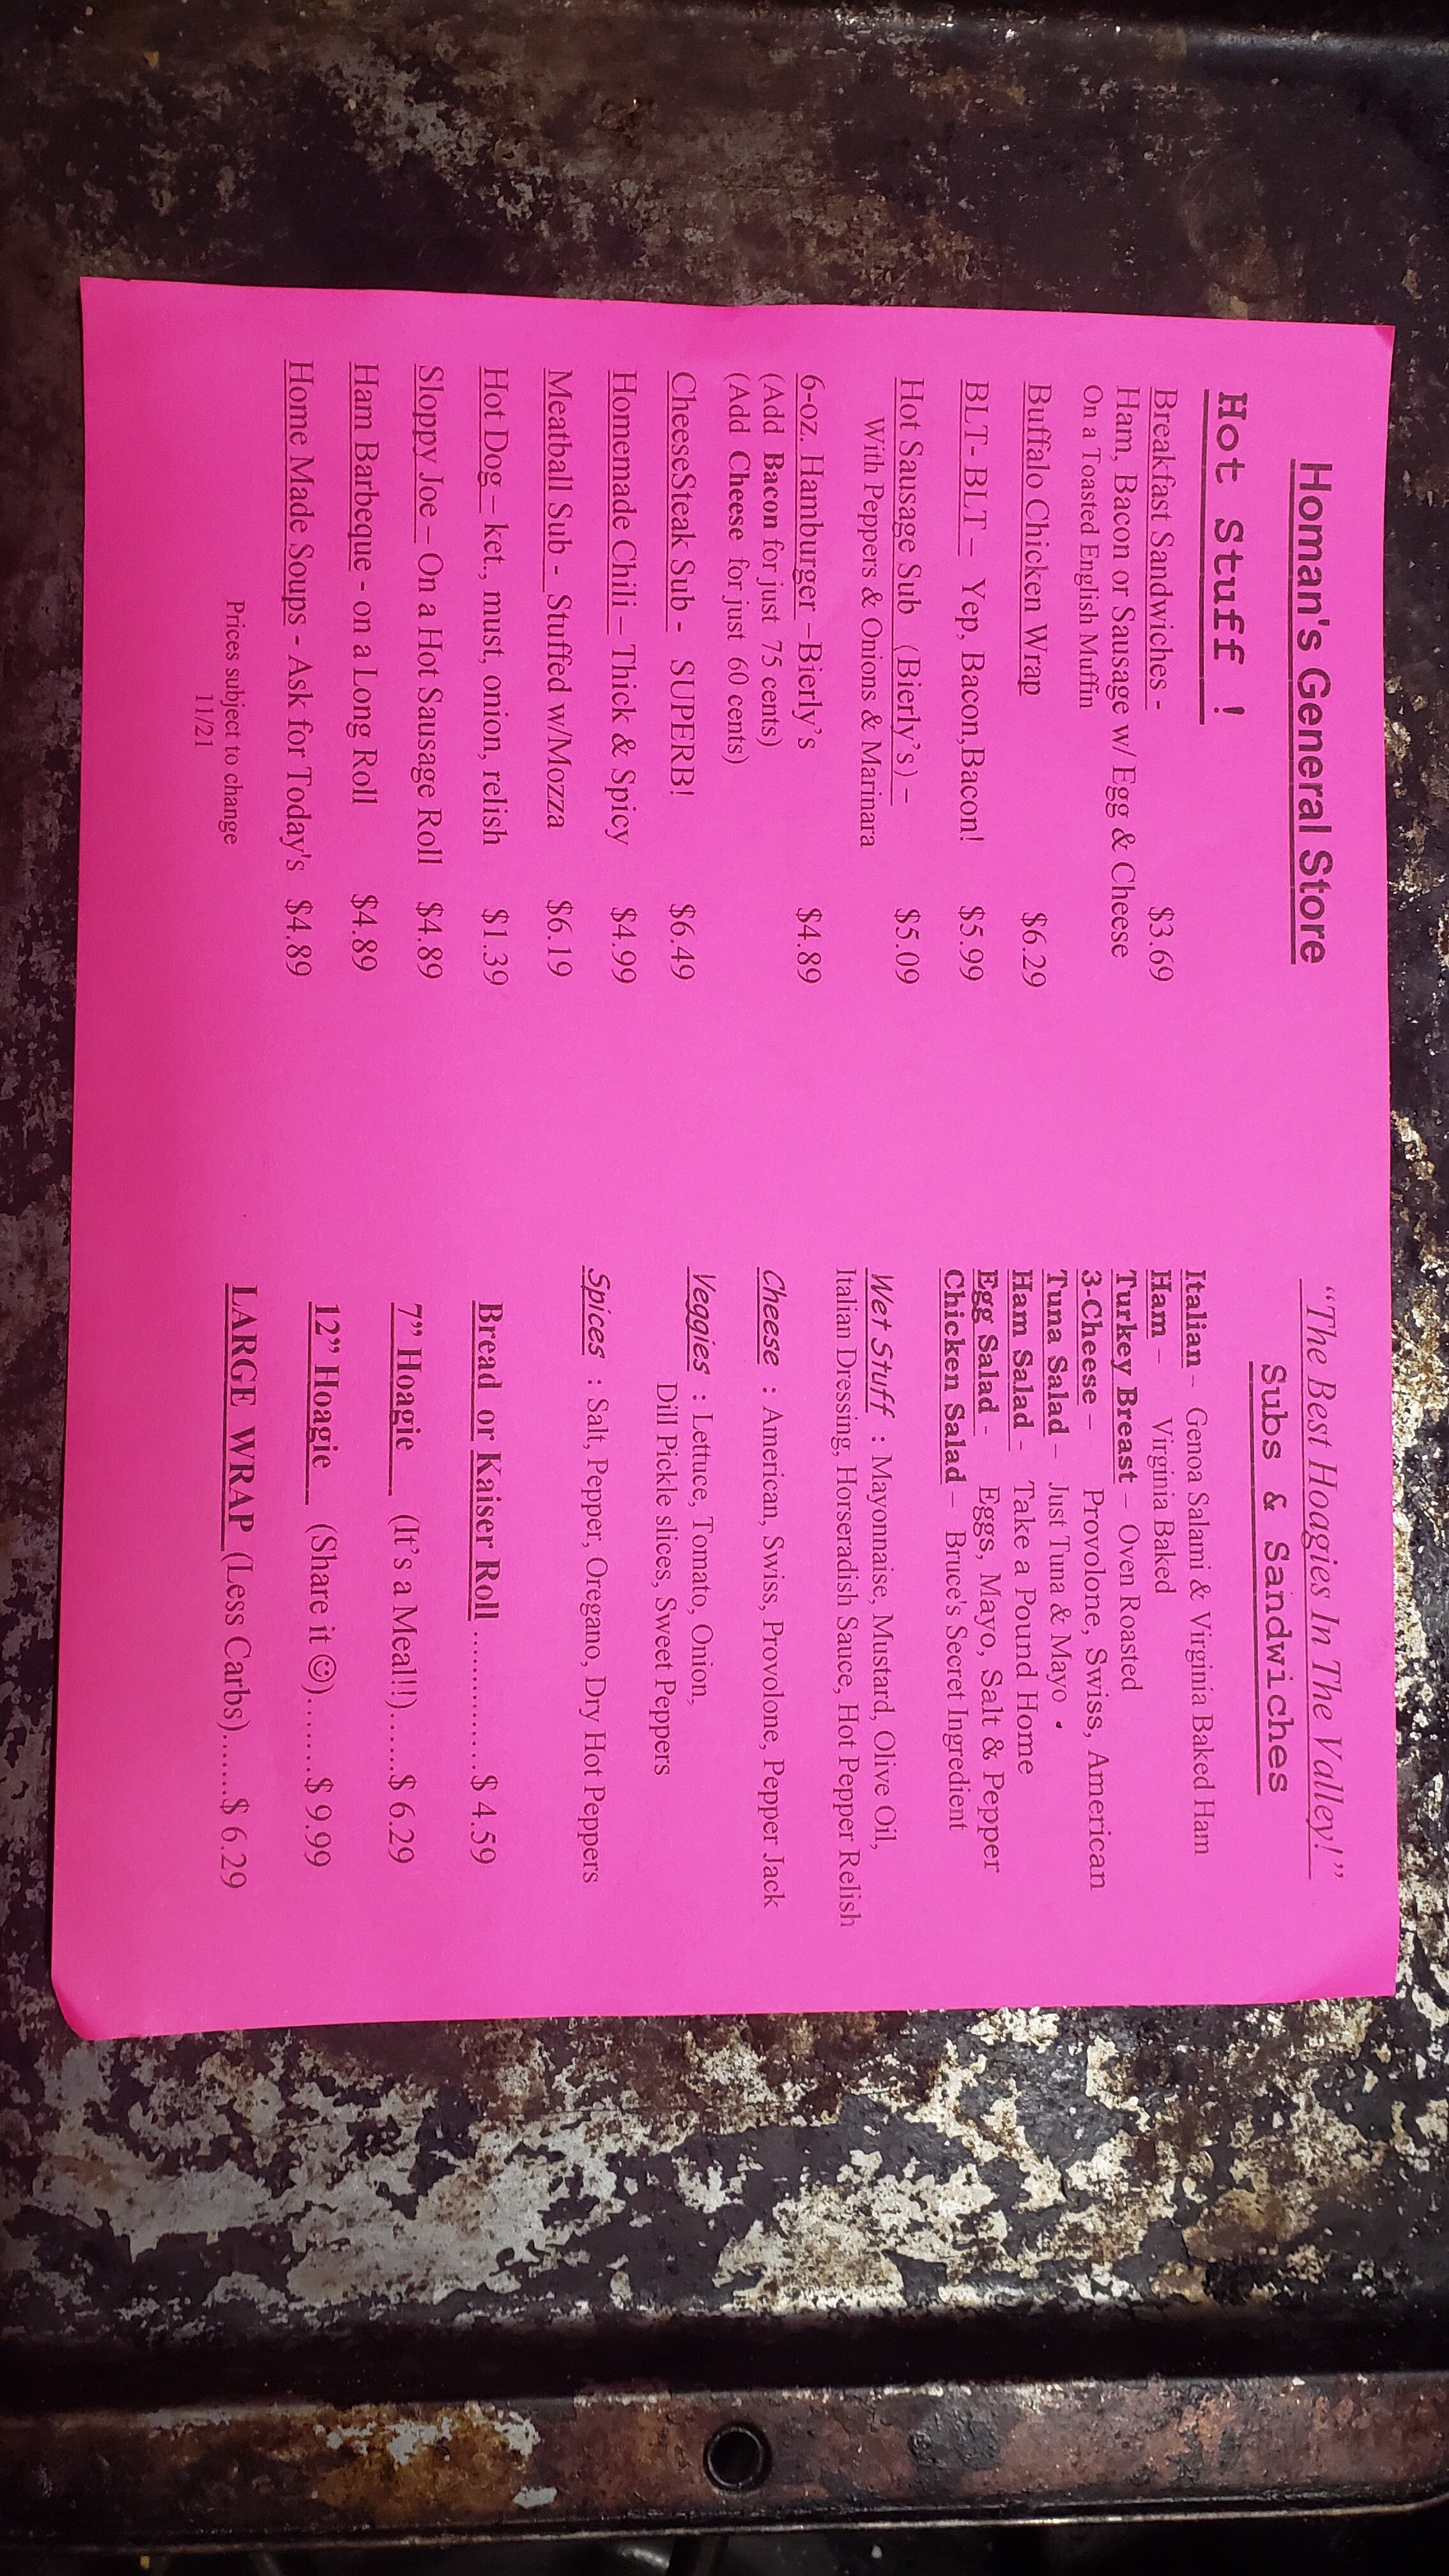 Homan's General Store
Hot Stuff !
Breakfast Sandwiches - $3.69
Ham, Bacon or Sausage w/ Egg & Cheese
On a Toasted English Muffin
Buffalo Chicken Wrap $6.29
BLT- BLT – Yep, Bacon,Bacon! $5.99
Hot Sausage Sub (Bierly’s) – $5.09
With Peppers & Onions & Marinara
6-oz. Hamburger –Bierly’s $4.89
(Add Bacon for just 75 cents)
(Add Cheese for just 60 cents)
CheeseSteak Sub - SUPERB! $6.49
Homemade Chili – Thick & Spicy $4.99
Meatball Sub - Stuffed w/Mozza $6.19
Hot Dog – ket., must, onion, relish $1.39
Sloppy Joe – On a Hot Sausage Roll $4.89
Ham Barbeque - on a Long Roll $4.89
Home Made Soups - Ask for Today's $4.89
Prices subject to change
11/21
“The Best Hoagies In The Valley!”
Subs & Sandwiches
Italian – Genoa Salami & Virginia Baked Ham
Ham – Virginia Baked
Turkey Breast – Oven Roasted
3-Cheese – Provolone, Swiss, American
Tuna Salad – Just Tuna & Mayo
Ham Salad - Take a Pound Home
Egg Salad - Eggs, Mayo, Salt & Pepper
Chicken Salad – Bruce's Secret Ingredient
Wet Stuff : Mayonnaise, Mustard, Olive Oil,
Italian Dressing, Horseradish Sauce, Hot Pepper Relish
Cheese : American, Swiss, Provolone, Pepper Jack
Veggies : Lettuce, Tomato, Onion,
Dill Pickle slices, Sweet Peppers
Spices : Salt, Pepper, Oregano, Dry Hot Peppers
Bread or Kaiser Roll ..............$ 4.59
7” Hoagie (It’s a Meal!!)......$ 6.29
12” Hoagie (Share it ☺)........$ 9.99
LARGE WRAP (Less Carbs).......$ 6.29